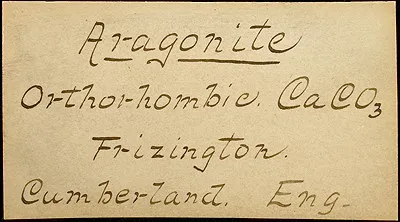 Aragonite
Orthorhombic. CaCO₃
Frizington.
Cumberland. Eng-